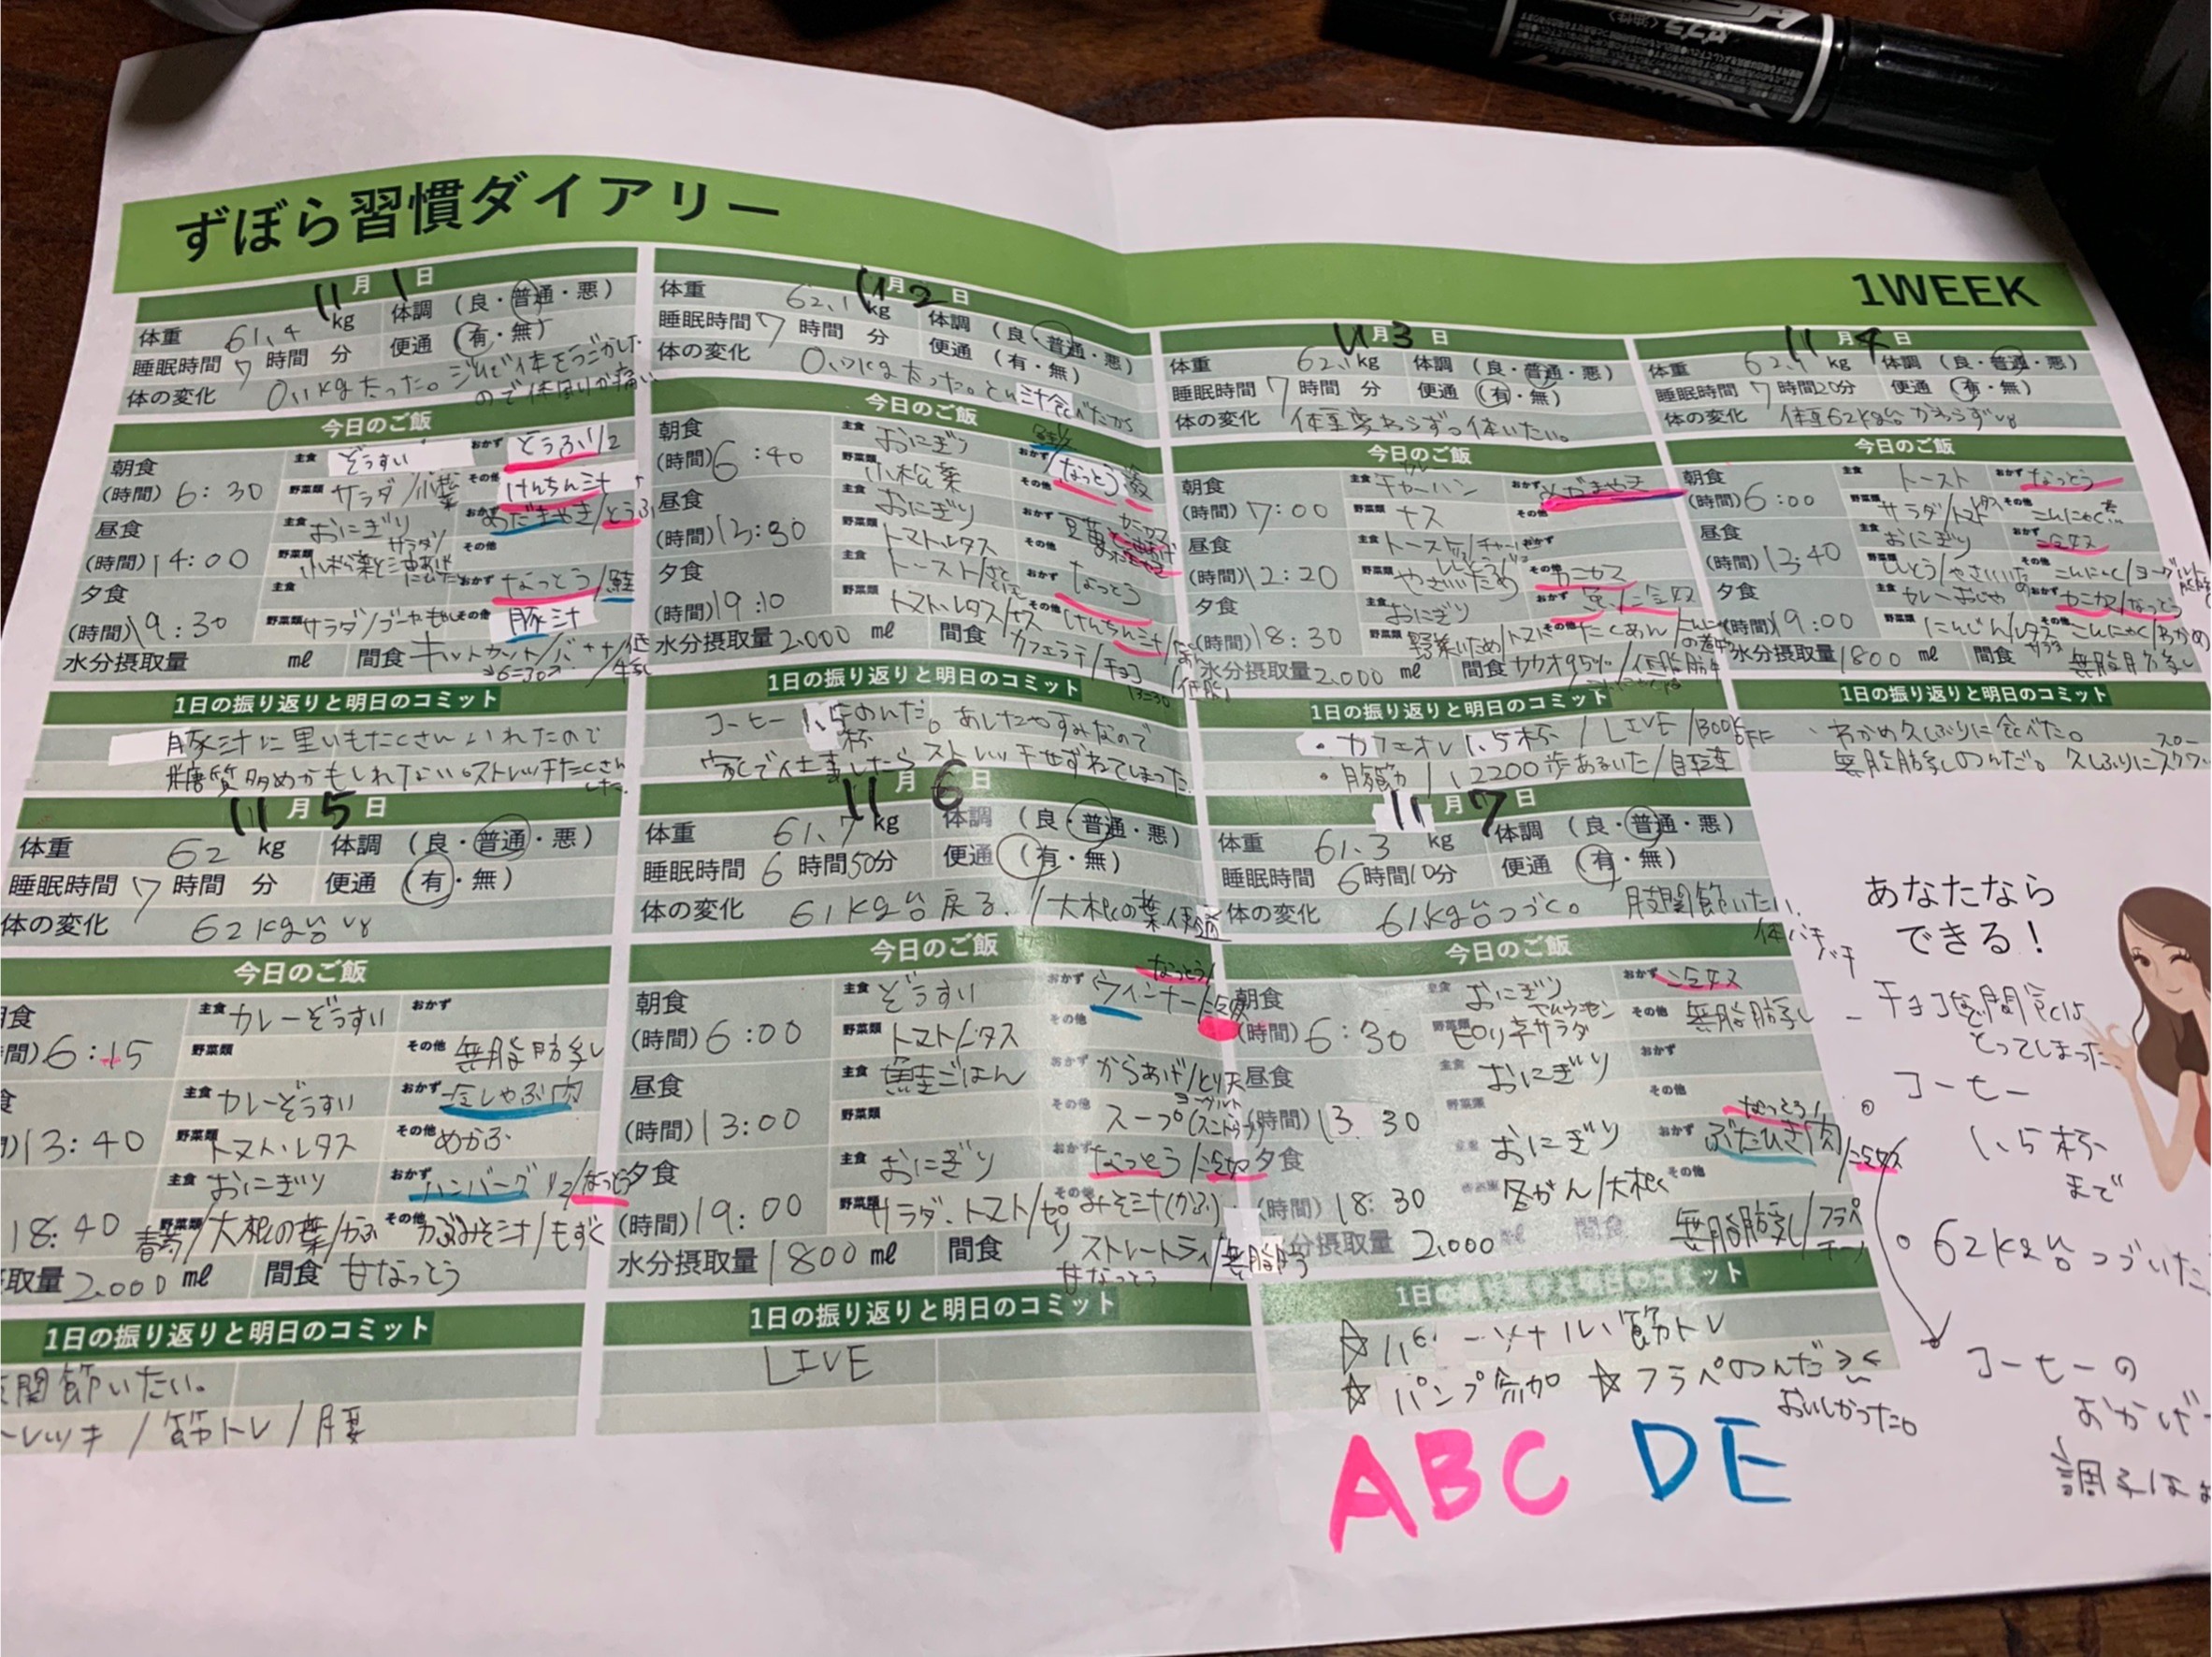 ずぼら習慣ダイアリー
1WEEK
11月1日
体重 61.4 kg 体調 (良・普通・悪)
睡眠時間 7 時間 分 便通 (有・無)
体の変化 0.1kgたった。ジムで体をうごかした
ので体ほりが痛い
今日のご飯
朝食 主食 ぞうすい おかず とうふ1/2
(時間) 6:30 野菜類 サラダ/小松菜 その他 けんちん汁
昼食 主食 おにぎり おかず めだまやき/とうふ
(時間) 14:00 野菜類 サラダ/ その他
夕食 主食 おかず なっとう/鮭
(時間) 19:30 野菜類 サラダ/ゴーヤ その他 豚汁
水分摂取量 ml 間食 キットカット/バナナ/低
牛乳
1日の振り返りと明日のコミット
豚汁に里いもたくさんいれたので
糖質多めかもしれない。ストレッチたくさん
した。
11月2日
体重 62.1 kg 体調 (良・普通・悪)
睡眠時間 7 時間 分 便通 (有・無)
体の変化 0.7kgたった。とん汁食べたから
今日のご飯
朝食 主食 おにぎり おかず なっとう
(時間) 6:40 野菜類 小松菜 その他
昼食 主食 おにぎり おかず
(時間) 13:30 野菜類 トマト、レタス その他
夕食 主食 トースト/ おかず なっとう
(時間) 19:10 野菜類 トマト、レタス/ナス その他 けんちん汁/
水分摂取量 2,000 ml 間食 カフェラテ/チョコ
1日の振り返りと明日のコミット
コーヒー 1.5杯のんだ。あしたやすみなので
家で仕事したらストレッチせずねてしまった
11月3日
体重 62.1 kg 体調 (良・普通・悪)
睡眠時間 7 時間 分 便通 (有・無)
体の変化 体重変わらずっ体いたい。
今日のご飯
朝食 主食 チャーハン おかず めだまやき
(時間) 7:00 野菜類 ナス その他
昼食 主食 トースト おかず
(時間) 12:20 野菜類 やさいいため その他 カニカマ
夕食 主食 おにぎり おかず
(時間) 18:30 野菜類 野菜いため/トマト その他 たくあん/
水分摂取量 2,000 ml 間食 カカオ95%/低脂肪牛
1日の振り返りと明日のコミット
・カフェオレ 1.5杯/LIVE/BOOKOFF
・腹筋/12200歩あるいた/自転車
11月4日
体重 62.1 kg 体調 (良・普通・悪)
睡眠時間 7 時間20分 便通 (有・無)
体の変化 体重62kg台かわらずis
今日のご飯
朝食 主食 トースト おかず なっとう
(時間) 6:00 野菜類 サラダ/トマト その他 こんにゃく
昼食 主食 おにぎり おかず
(時間) 13:40 野菜類 ししとう/やさいいため その他 こんにゃく/ヨーグルト
夕食 主食 カレーおじや おかず カニカマ/なっとう
(時間) 19:00 野菜類 にんじん/レタス その他 こんにゃく/わかめ
水分摂取量 1800 ml 間食 無脂肪乳
1日の振り返りと明日のコミット
・わかめ久しぶりに食べた。
無脂肪乳のんだ。久しぶりにスロー
11月5日
体重 62 kg 体調 (良・普通・悪)
睡眠時間 7 時間 分 便通 (有・無)
体の変化 62kg台
今日のご飯
食 主食 カレーぞうすい おかず
間) 6:15 野菜類 その他 無脂肪乳
食 主食 カレーぞうすい おかず 冷しゃぶ肉
) 13:40 野菜類 トマト・レタス その他 めかぶ
主食 おにぎり おかず ハンバーグ1/2/なっとう
18:40 野菜類 春菊/大根の葉/かぶ その他 かぶみそ汁/もずく
取量 2,000 ml 間食 甘なっとう
1日の振り返りと明日のコミット
関節いたい。
レッチ/筋トレ/腰
11月6日
体重 61.7 kg 体調 (良・普通・悪)
睡眠時間 6 時間50分 便通 (有・無)
体の変化 61kg台戻る。/大根の葉 便通
今日のご飯
朝食 主食 ぞうすい おかず なっとう/ウインナー/
(時間) 6:00 野菜類 トマト/レタス その他
昼食 主食 鮭ごはん おかず からあげ/とり天
(時間) 13:00 野菜類 その他 ヨーグルト スープ
夕食 主食 おにぎり おかず なっとう/
(時間) 19:00 野菜類 サラダ、トマト/セロリ その他 みそ汁(かぶ)
水分摂取量 1800 ml 間食 ストレートティ/無脂肪
甘なっとう
1日の振り返りと明日のコミット
LIVE
11月7日
体重 61.3 kg 体調 (良・普通・悪)
睡眠時間 6時間10分 便通 (有・無)
体の変化 61kg台つづく。股関節いたい
体バキバキ
今日のご飯
朝食 主食 おにぎり おかず
(時間) 6:30 野菜類 ピリ辛サラダ その他 無脂肪乳
昼食 主食 おにぎり おかず
(時間) 13:30 野菜類 その他
夕食 おにぎり おかず なっとう/ぶたひき肉/
(時間) 18:30 冬がん/大根 その他
分摂取量 2,000 無脂肪乳/フラペチーノ
1日の振り返りと明日のコミット
☆パーソナル、筋トレ
☆パンプ参加 ☆フラペのんだ
おいしかった。
ABC DE
あなたなら
できる!
チョコなど間食には
とってしまった
コーヒー
1.5杯
まで
62kg台つづいた
コーヒーの
おかげ
調子は